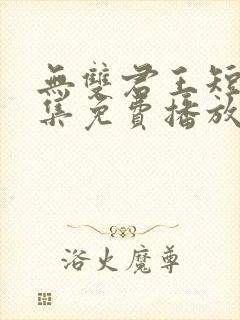 無雙君王短
集免費播放
浴火魔尊